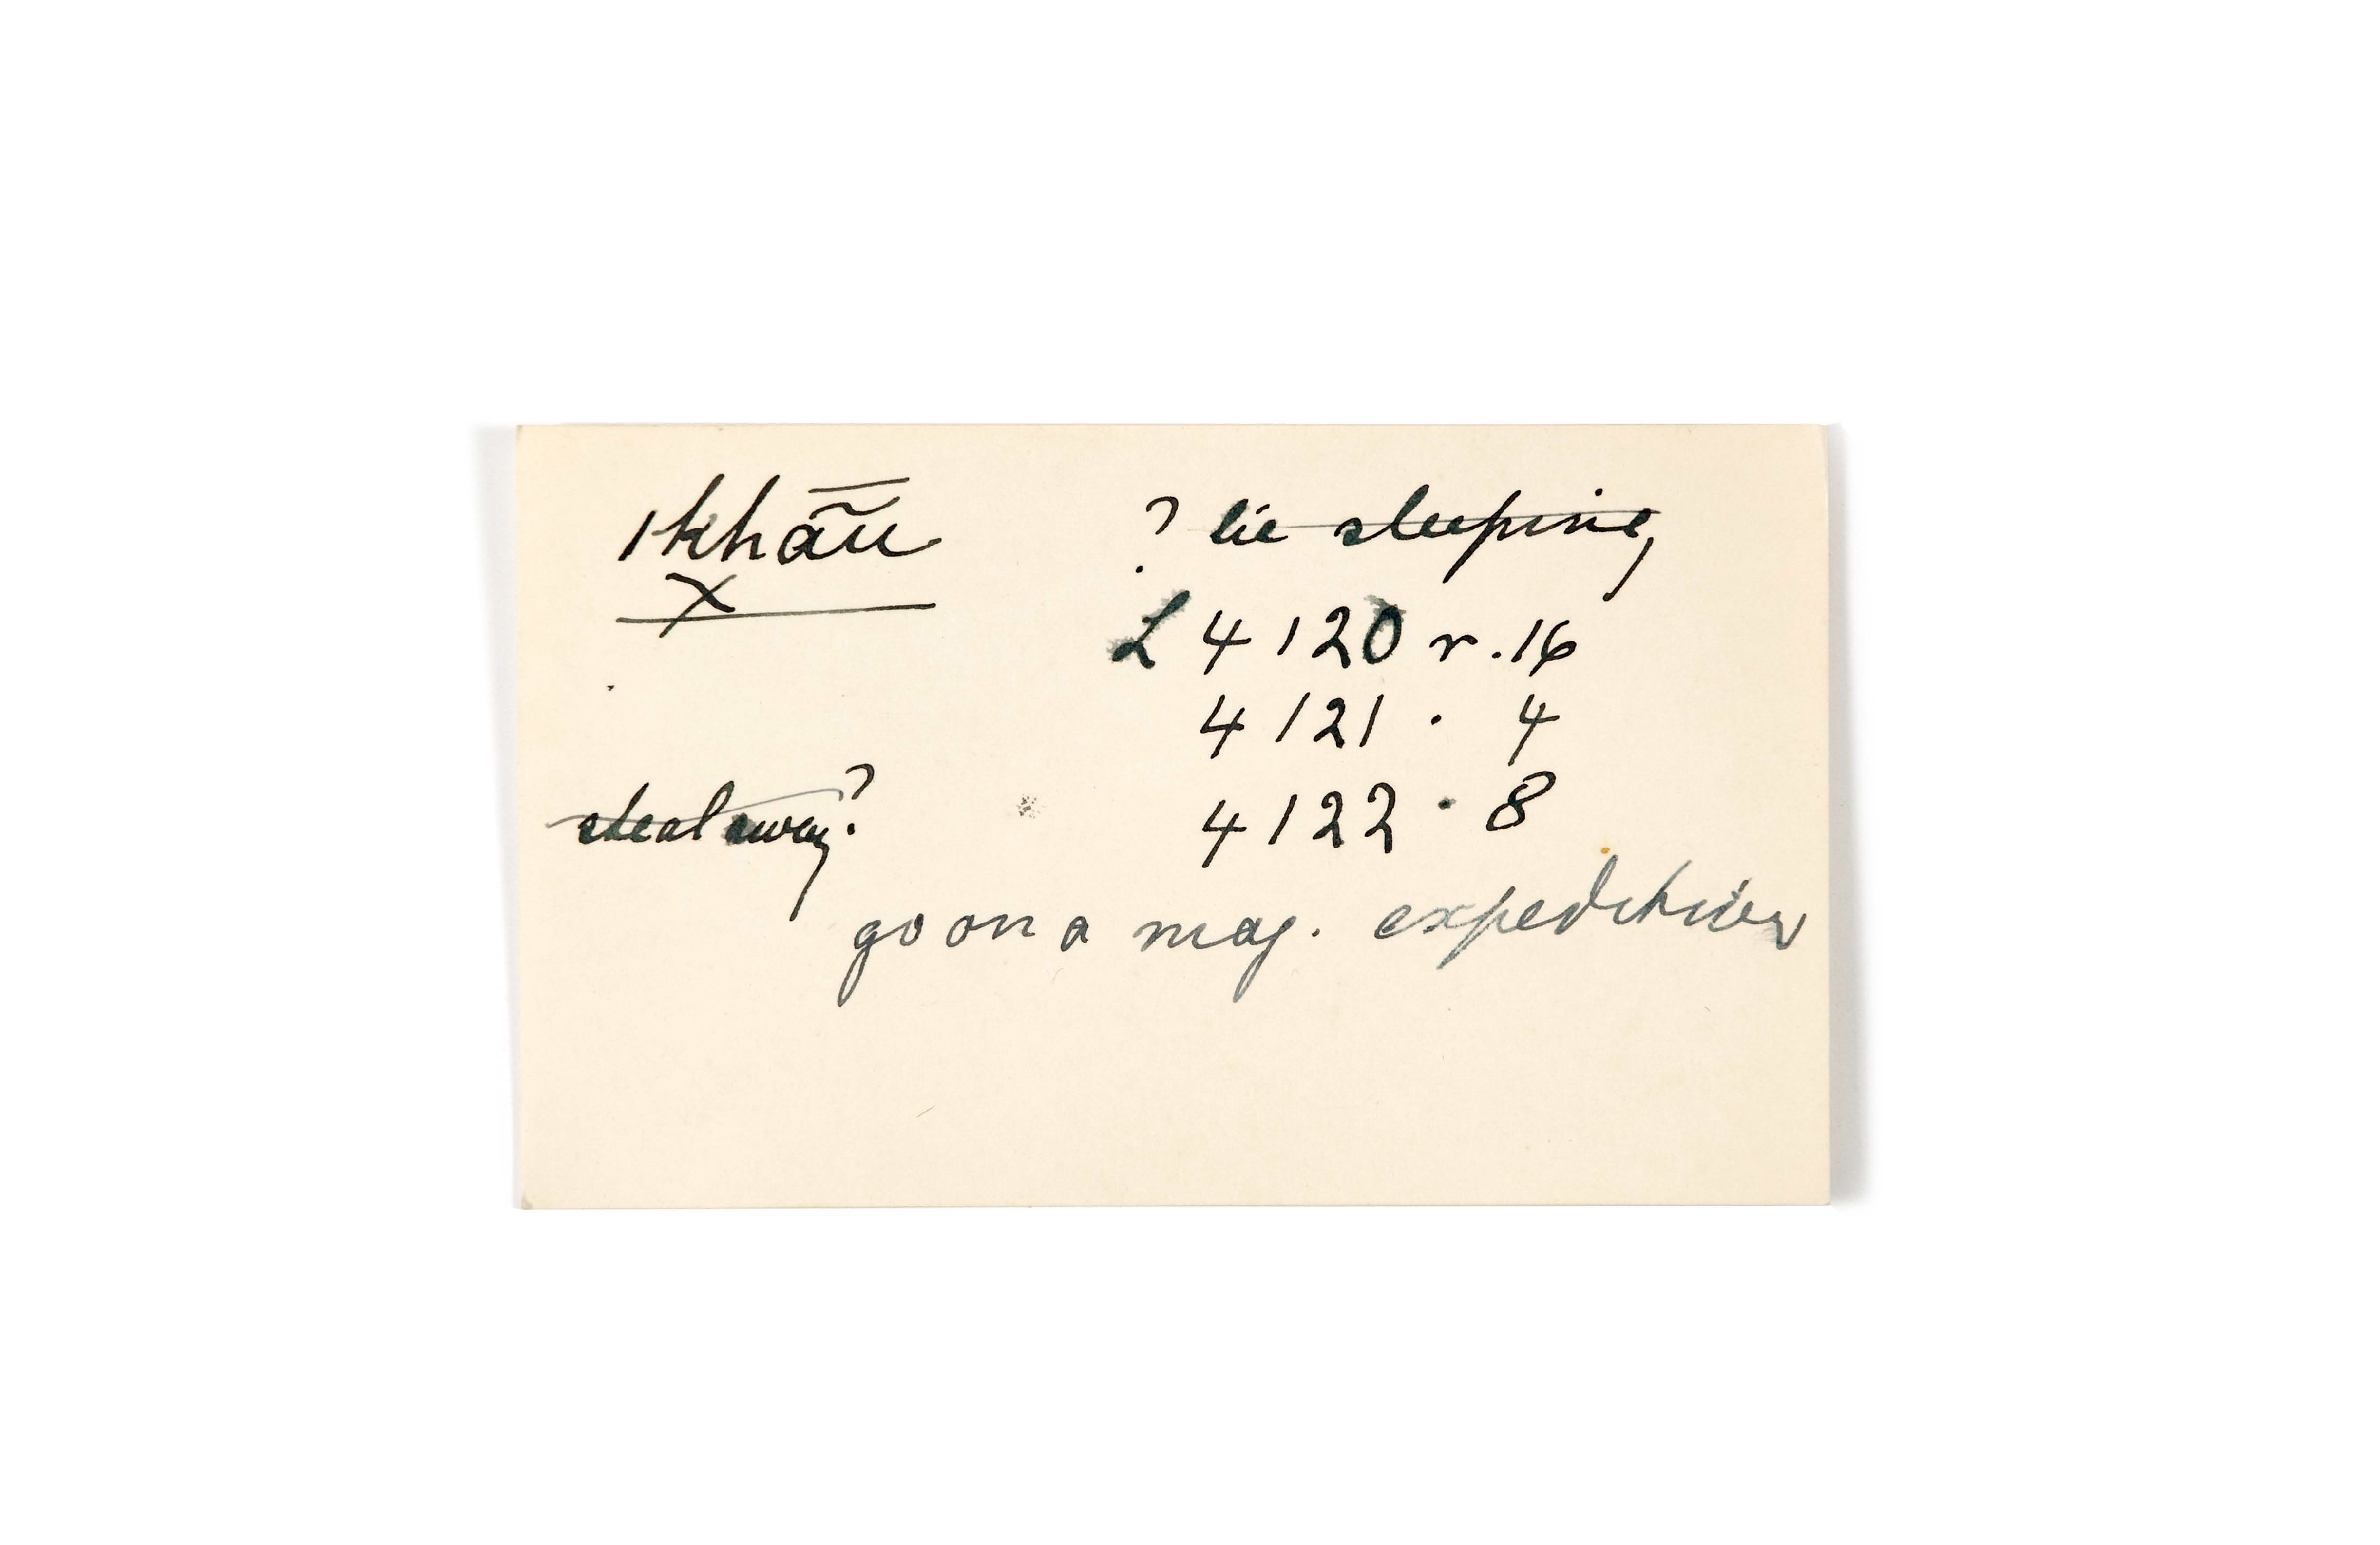 ǀkhā̃ũ ? lie sleeping
X
L 4120 r. 16
4121 · 4
steal away? 4122 · 8
go on a mag. expedition